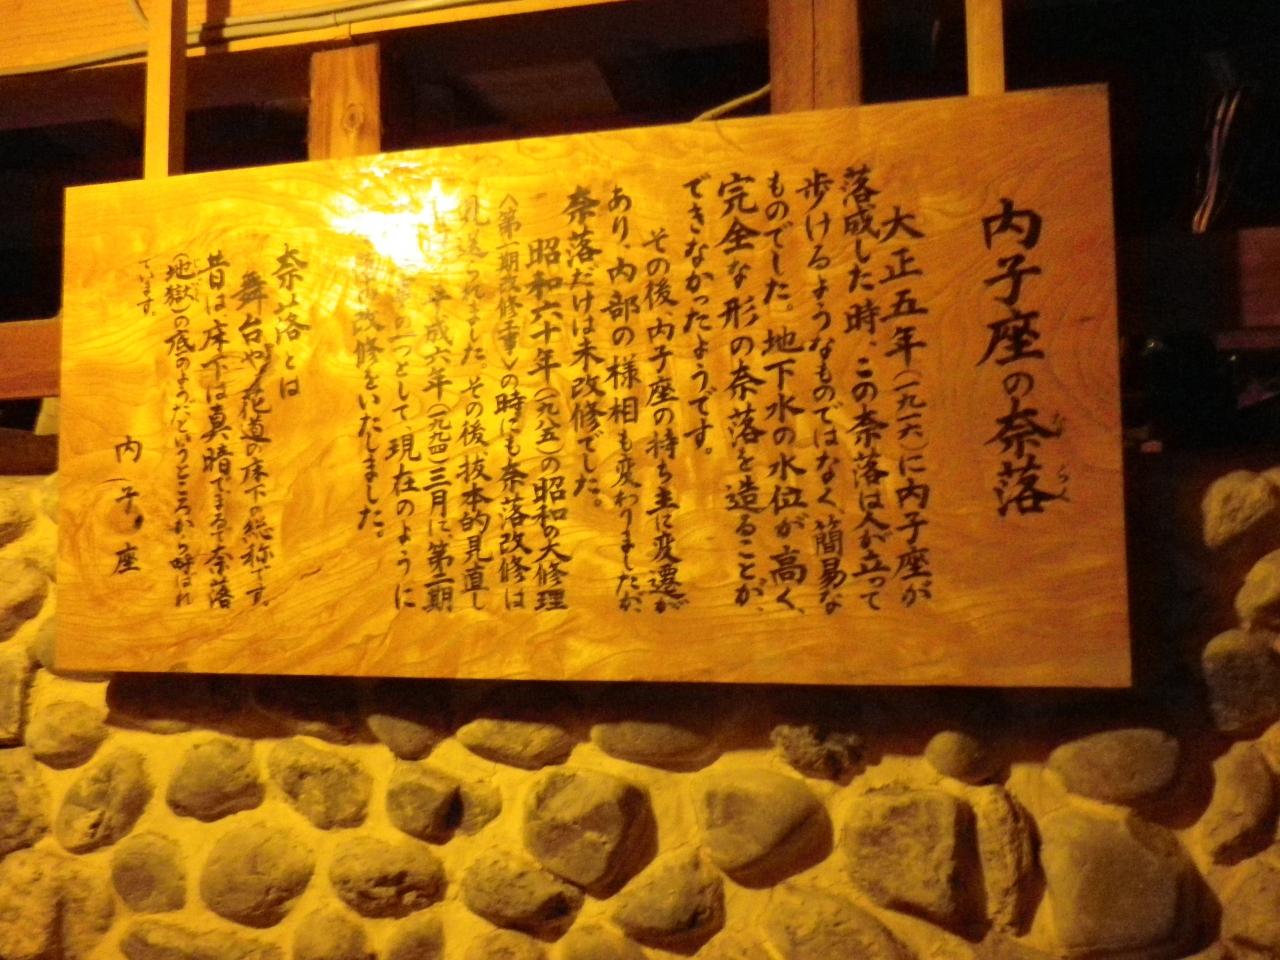 内子座の奈落
ならく
大正五年(一九一六)に内子座が
落成した時、この奈落は人が立って
歩けるようなものではなく、簡易な
ものでした。地下水の水位が高く、
完全な形の奈落を造ることが、
できなかったようです。
その後、内子座の持ち主に変遷が
あり、内部の様相も変わりましたが、
奈落だけは未改修でした。
昭和六十年(一九八五)の昭和の大修理
〈第一期改修事〉の時にも奈落改修は
見送られました。その後、抜本的見直し
平成六年(一九九四)三月に、第二期
の一つとして、現在のように
改修をいたしました。
奈落とは
舞台や花道の床下の総称です。
昔は、床下は真暗でまるで奈落
(地獄)の底のようだというところから呼ばれ
ています。
内子座